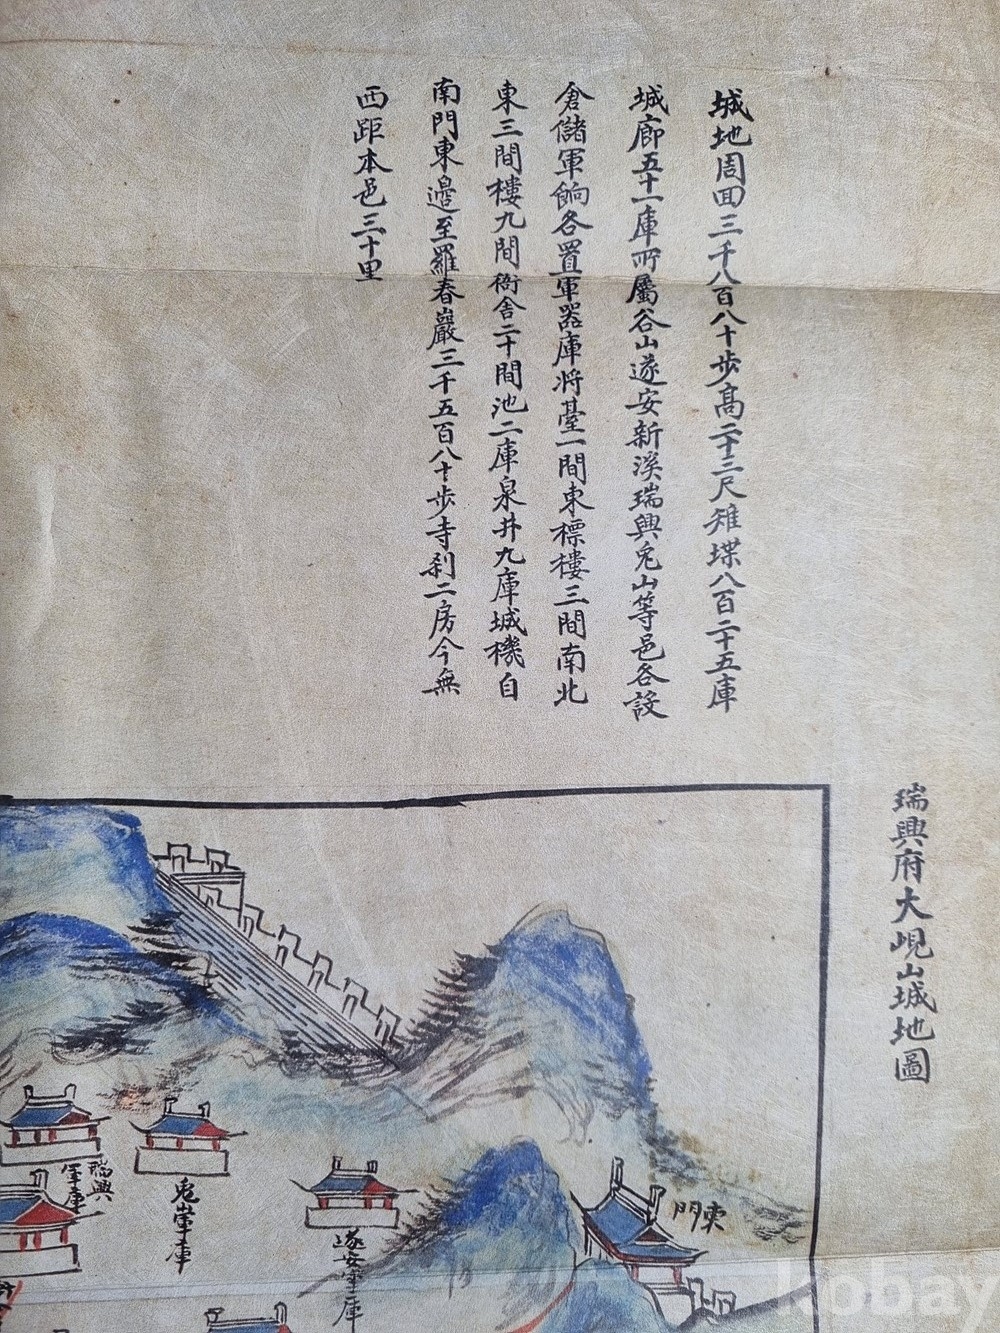 城地周回三千八百八十步高二十三尺雉堞八百二十五庫
城廊五十一庫所屬谷山遂安新溪瑞興兎山等邑各設
倉儲軍餉各置軍器庫将臺一間東標樓三間南北
東三間樓九間衙舍二十間池二庫泉井九庫城機自
南門東邊至羅春巖三千五百八十步寺刹二房今無
西距本邑三十里
瑞興府大峴山城地圖
瑞興
軍庫
兎軍庫
遂安軍庫
東門
kobay